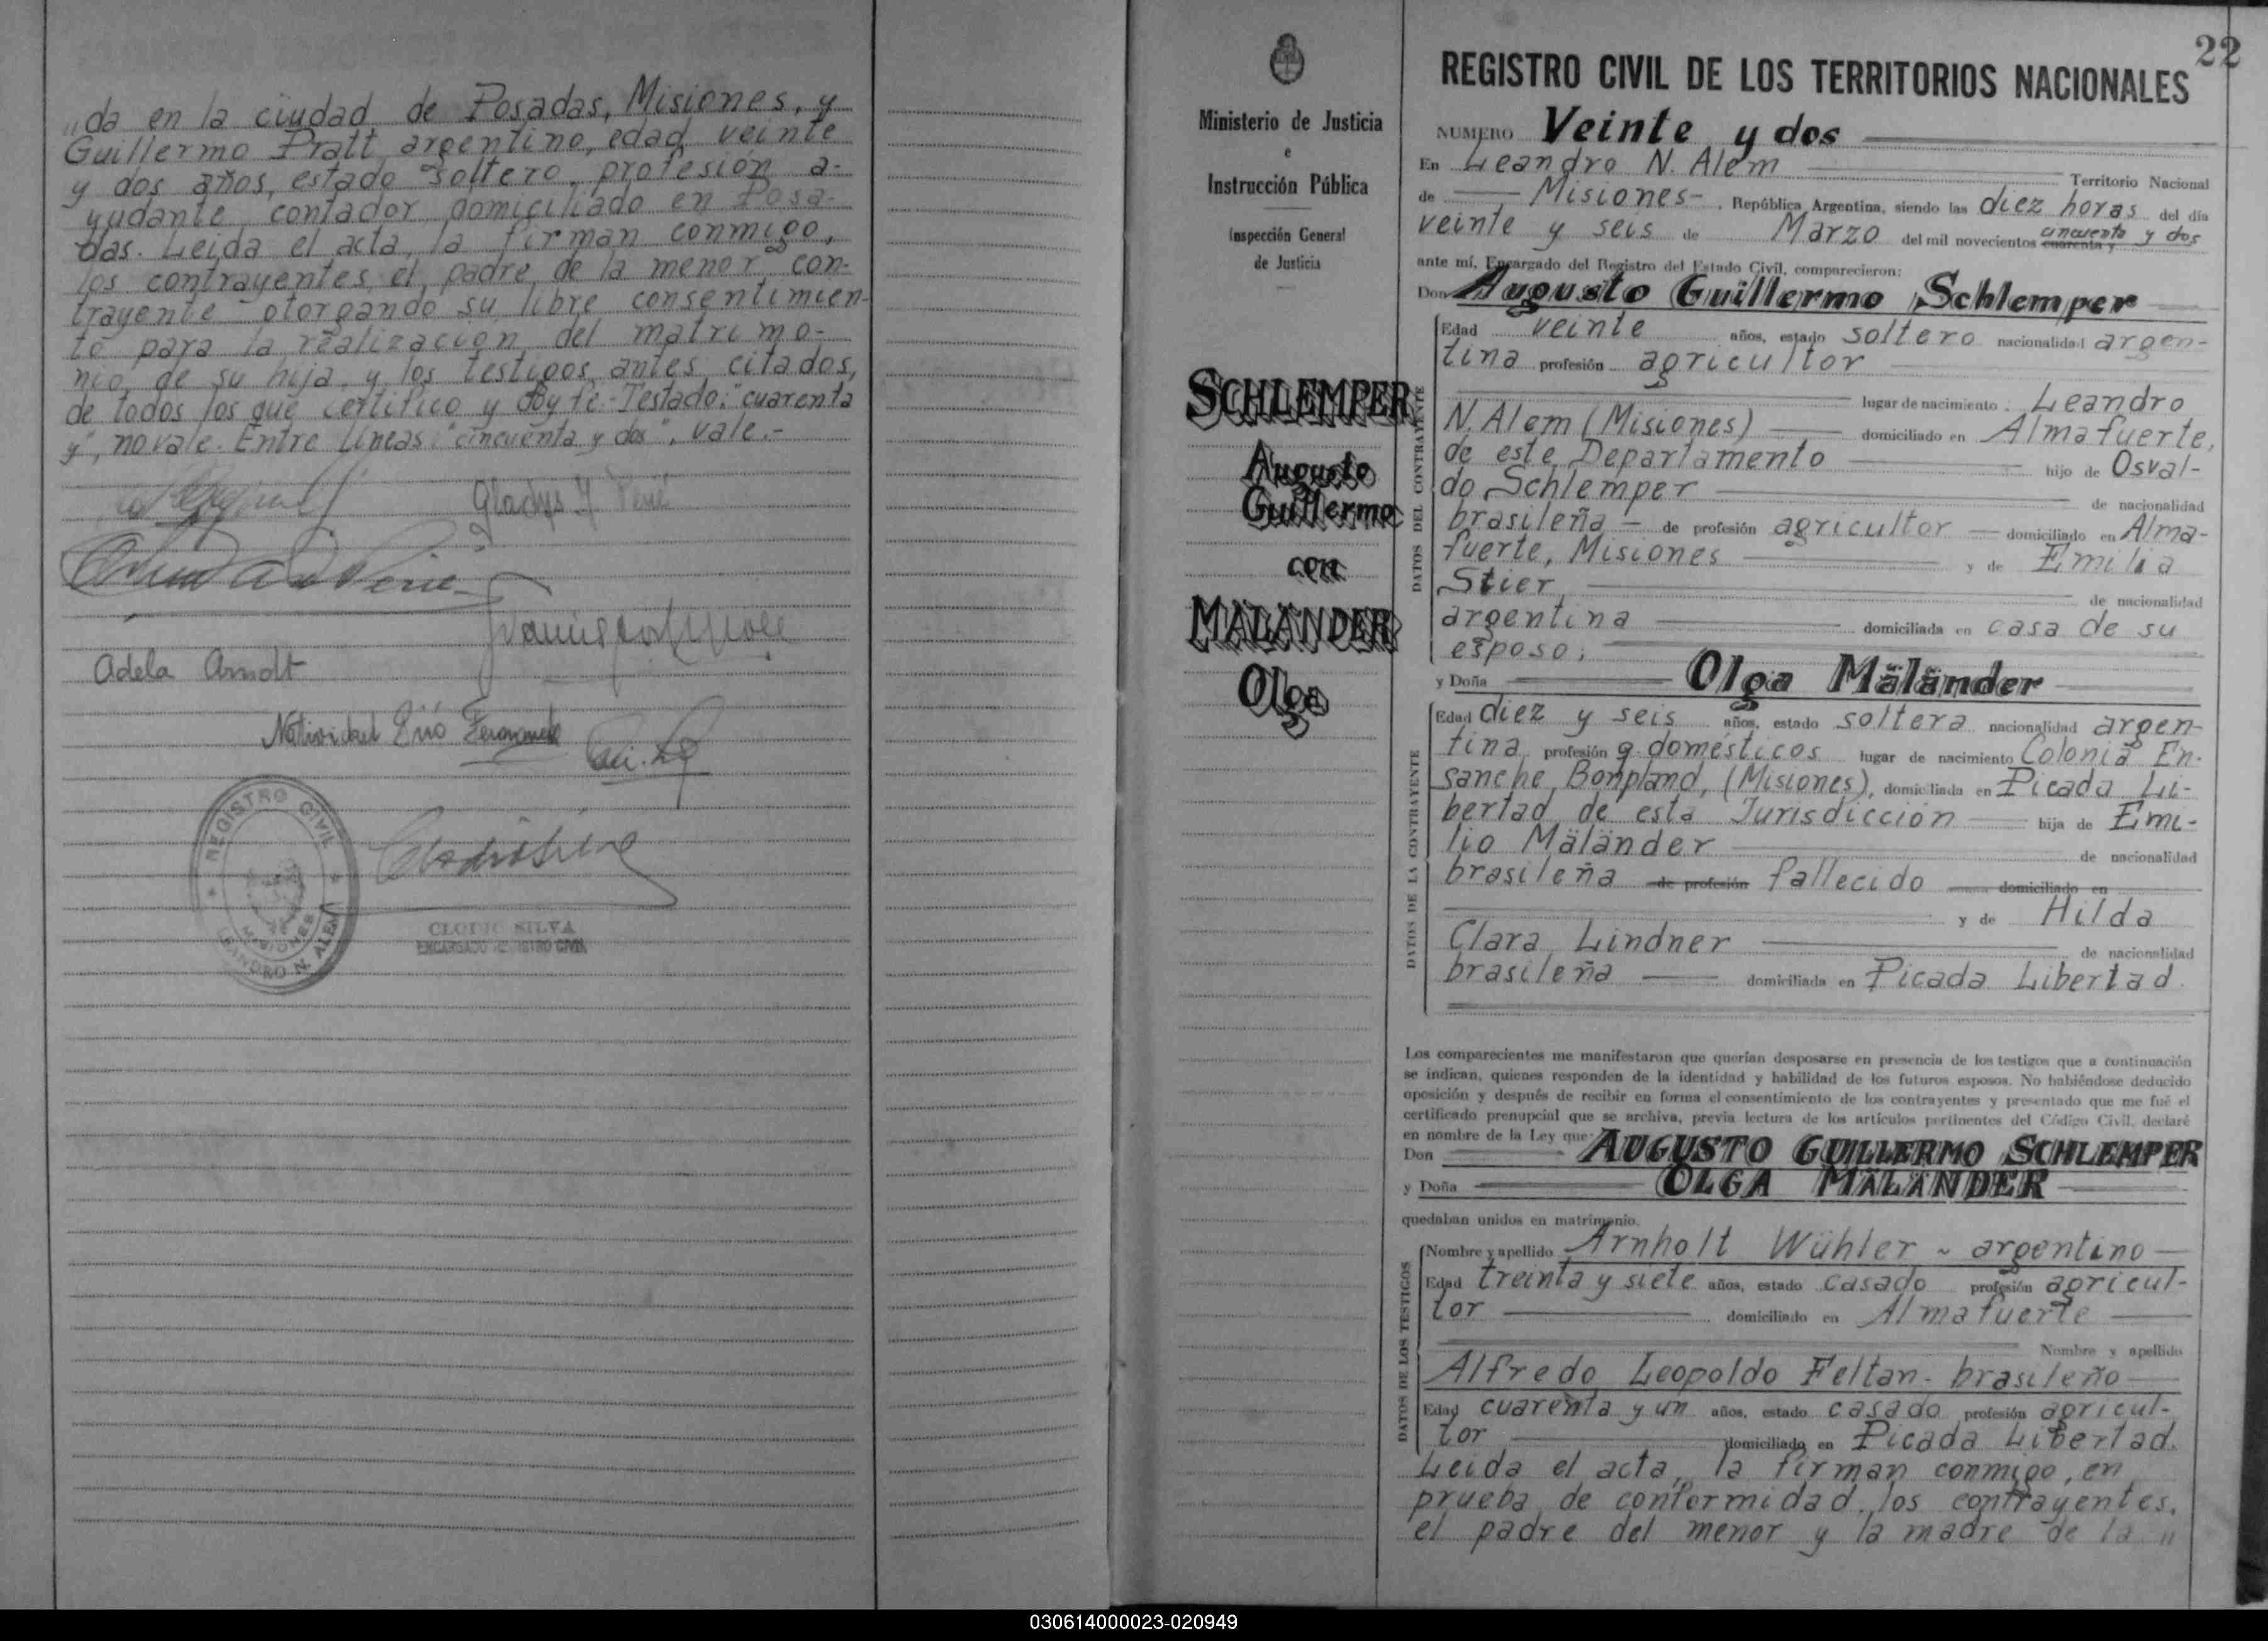 „da en la ciudad de Posadas, Misiones, y
Guillermo Pratt, argentino, edad veinte
y dos años, estado soltero, profesión a-
yudante contador domiciliado en Posa-
das. Leída el acta, la firman conmigo,
los contrayentes, el padre de la menor con-
trayente otorgando su libre consentimien-
to para la realización del matrimo-
nio de su hija, y los testigos antes citados,
de todos los que certifico y doy fé.- Testado: "cuarenta
y", no vale. Entre líneas: "cincuenta y dos", vale.-
Gladys Y
Adela Arndt
Natividad
REGISTRO CIVIL
MISIONES
LEANDRO N. ALEM
CLODIO SILVA
ENCARGADO REGISTRO CIVIL
Ministerio de Justicia
e
Instrucción Pública
Inspección General
de Justicia
SCHLEMPER
Augusto
Guillermo
con
MÄLÄNDER
Olga
22
REGISTRO CIVIL DE LOS TERRITORIOS NACIONALES
NUMERO Veinte y dos
En Leandro N. Alem Territorio Nacional
de Misiones- , República Argentina, siendo las diez horas del día
veinte y seis de Marzo del mil novecientos cuarenta y cincuenta y dos
ante mí, Encargado del Registro del Estado Civil, comparecieron:
Don Augusto Guillermo Schlemper
DATOS DEL CONTRAYENTE
Edad veinte años, estado soltero nacionalidad argen-
tina profesión agricultor
lugar de nacimiento Leandro
N. Alem (Misiones) domiciliado en Almafuerte,
de este Departamento hijo de Osval-
do Schlemper de nacionalidad
brasileña - de profesión agricultor domiciliado en Alma-
fuerte, Misiones y de Emilia
Stier, de nacionalidad
argentina domiciliada en casa de su
esposo;
y Doña Olga Mäländer
DATOS DE LA CONTRAYENTE
Edad diez y seis años, estado soltera nacionalidad argen-
tina profesión q. domésticos lugar de nacimiento Colonia En-
sanche Bonpland, (Misiones), domiciliada en Picada Li-
bertad, de esta Jurisdicción hija de Emi-
lio Mäländer de nacionalidad
brasileña de profesión fallecido domiciliado en
y de Hilda
Clara Lindner de nacionalidad
brasileña domiciliada en Picada Libertad.
Los comparecientes me manifestaron que querían desposarse en presencia de los testigos que a continuación
se indican, quienes responden de la identidad y habilidad de los futuros esposos. No habiéndose deducido
oposición y después de recibir en forma el consentimiento de los contrayentes y presentado que me fué el
certificado prenupcial que se archiva, previa lectura de los artículos pertinentes del Código Civil, declaré
en nombre de la Ley que:
Don AUGUSTO GUILLERMO SCHLEMPER
y Doña OLGA MÄLÄNDER
quedaban unidos en matrimonio.
DATOS DE LOS TESTIGOS
Nombre y apellido Arnholt Wühler ~ argentino
Edad treinta y siete años, estado casado profesión agricul-
tor domiciliado en Almafuerte
Nombre y apellido
Alfredo Leopoldo Feltan - brasileño
Edad cuarenta y un años, estado casado profesión agricul-
tor domiciliado en Picada Libertad.
Leída el acta, la firman conmigo, en
prueba de conformidad, los contrayentes,
el padre del menor y la madre de la „
030614000023-020949